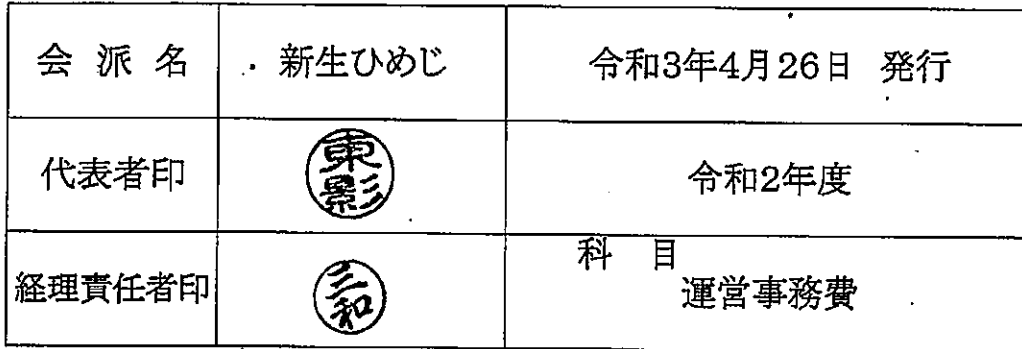 会派名 新生ひめじ 令和3年4月26日 発行
代表者印 東影 令和2年度
経理責任者印 三和 科目
運営事務費